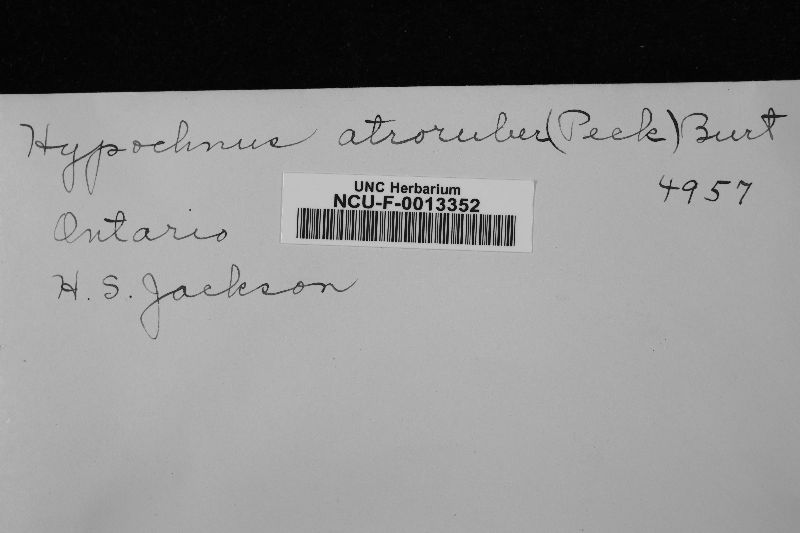 Hypochnus atroruber (Peck) Burt
4957
UNC Herbarium
NCU-F-0013352
Ontario
H. S. Jackson